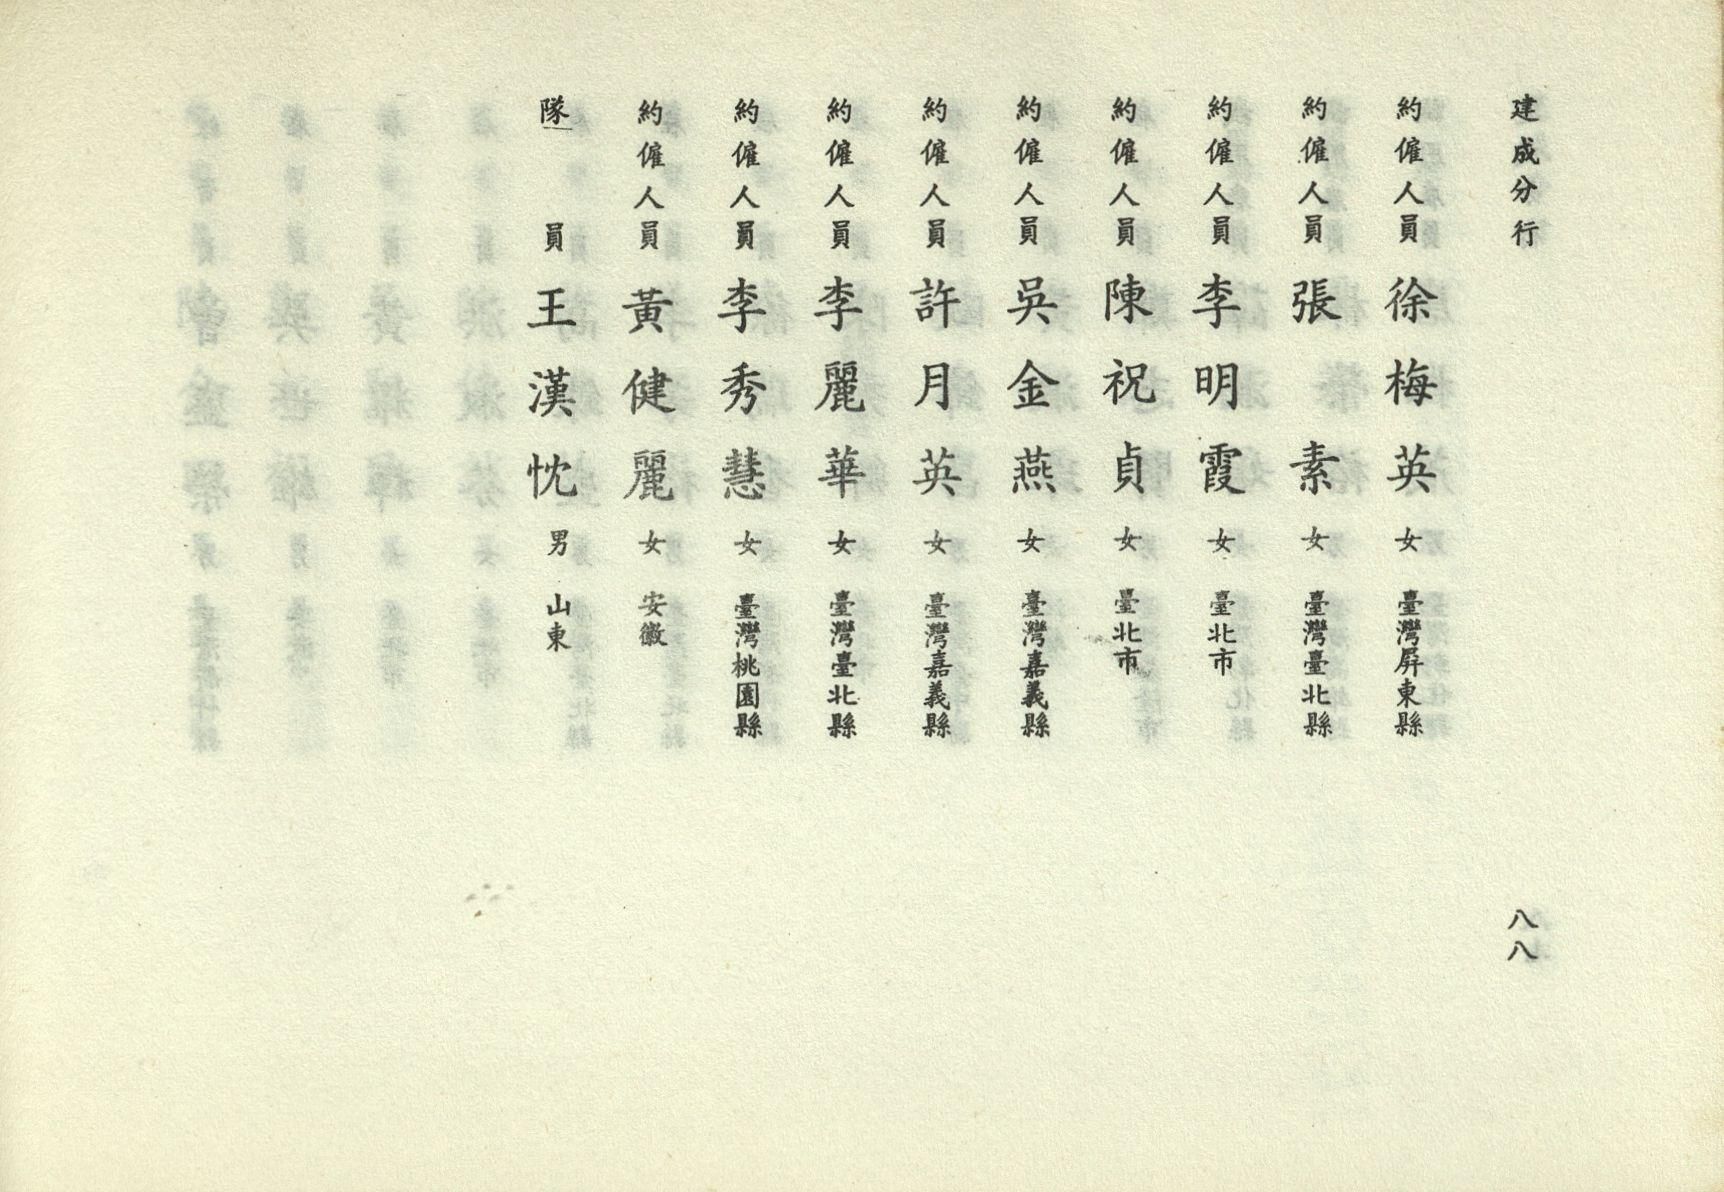 建成分行
八八
約僱人員 徐梅英 女 臺灣屏東縣
約僱人員 張素 女 臺灣臺北縣
約僱人員 李明霞 女 臺北市
約僱人員 陳祝貞 女 臺北市
約僱人員 吳金燕 女 臺灣嘉義縣
約僱人員 許月英 女 臺灣嘉義縣
約僱人員 李麗華 女 臺灣臺北縣
約僱人員 李秀慧 女 臺灣桃園縣
約僱人員 黃健麗 女 安徽
隊員 王漢忱 男 山東